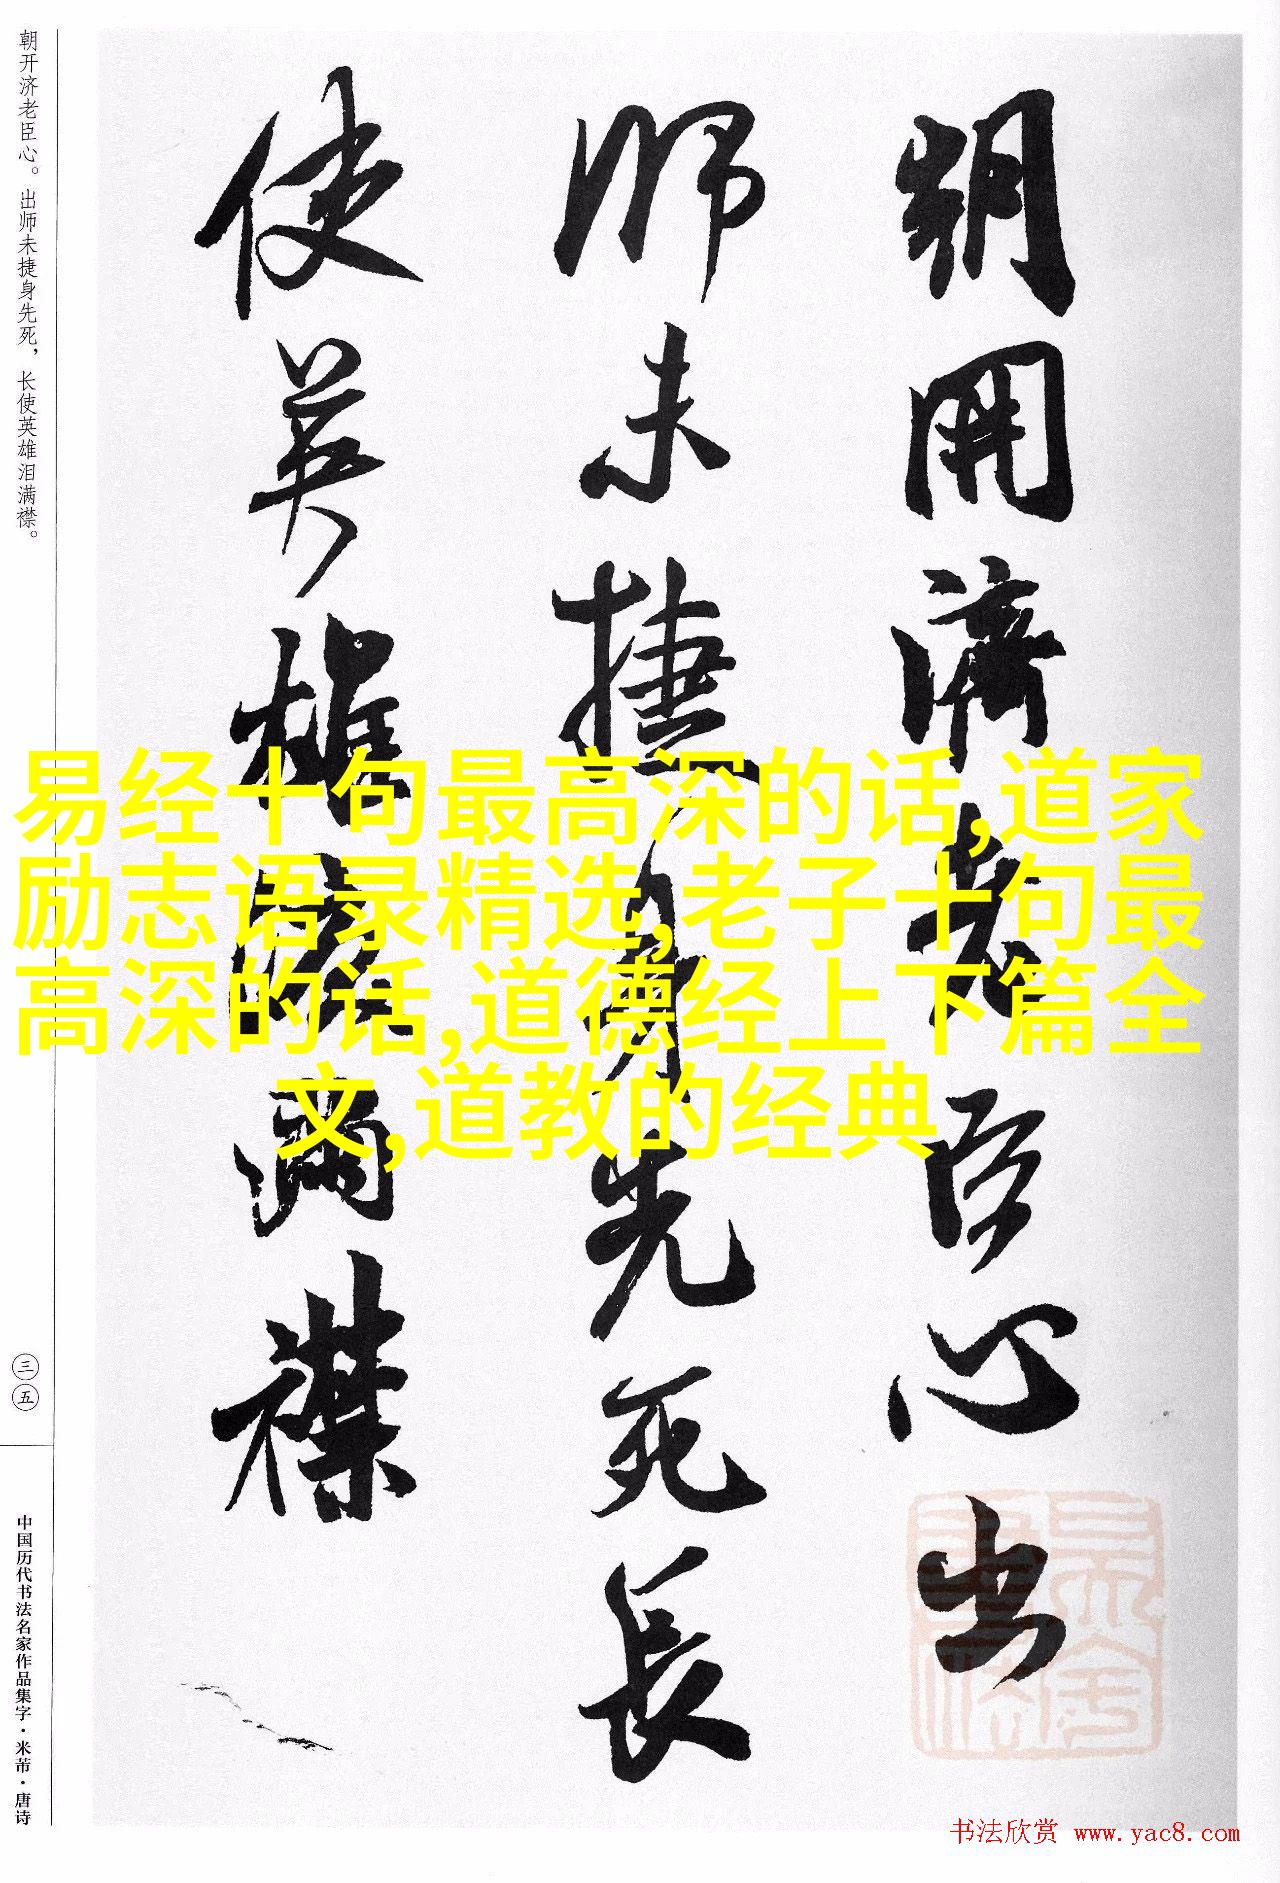 朝開濟老臣心出
師未捷身先死長
使英雄淚滿襟
朝开济老臣心。出师未捷身先死，长使英雄泪满襟。
三五
中国历代书法名家作品集字·米芾·唐诗
易经十句最高深的话,道家
励志语录精选,老子十句最
高深的话,道德经上下篇全
文,道教的经典
书法欣赏 www.yac8.com